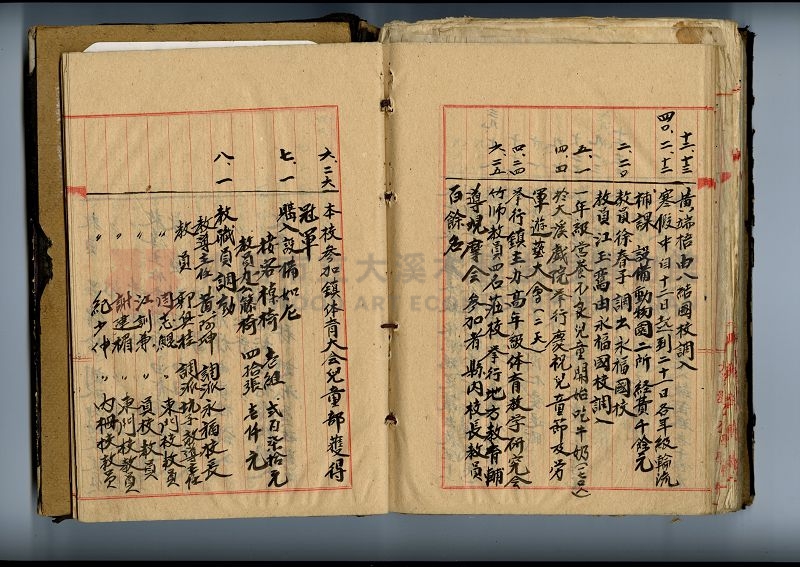 十二、十三 黃端棓由八結國校調入
四〇、二、十二 寒假中自十二日起到二十一日各年級輪流
補課 設備動物園二所 経費千餘元
二、二〇 教員徐春子調出永福國校
教員江玉鸞由永福國校調入
五、一 一年級営養不良兒童開始吃牛奶(一七〇人)
四、四 於大溪戲院舉行慶祝兒童節及労
軍遊藝大會(二天)
四、二四 举行鎮主办高年級体育教学研究会
六、二五 竹师教員四名莅校 举行地方教育輔
導観摩会 参加者縣內校長教員
百餘名
六、二六 本校参加鎮体育大会兒童部獲得
冠軍
七、一 購入設備如左
校名 棹椅 壱組 弍百
教員 籐椅 四拾張 壱仟元
八、一 教職員調動
教導主任 黃 坤 調派永福校長
教員 郭 桂 調派 教導主任
〃 周志鯤 〃 東门校教員
〃 江 〃 員校教員
〃 謝建楣 〃 東门校教員
〃 紀少仲 〃 內柵校教員